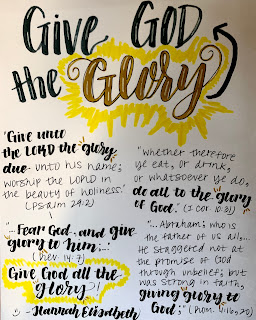 Give GOD
the Glory
"Give unto
the LORD the glory
due unto his name;
worship the LORD in
the beauty of holiness."
(Psalm 29:2)
"Fear God, and give
glory to him;..."
(Rev. 14:7)
Give God all the
glory!
- Hannah Elizabeth
"Whether therefore
ye eat, or drink,
or whatsoever ye do,
do all to the glory
of God." (1 Cor. 10:31)
"...Abraham; who is
the father of us all,...
He staggered not at
the promise of God
through unbelief; but
was strong in faith,
giving glory to
God;" (Rom. 4:16,20)